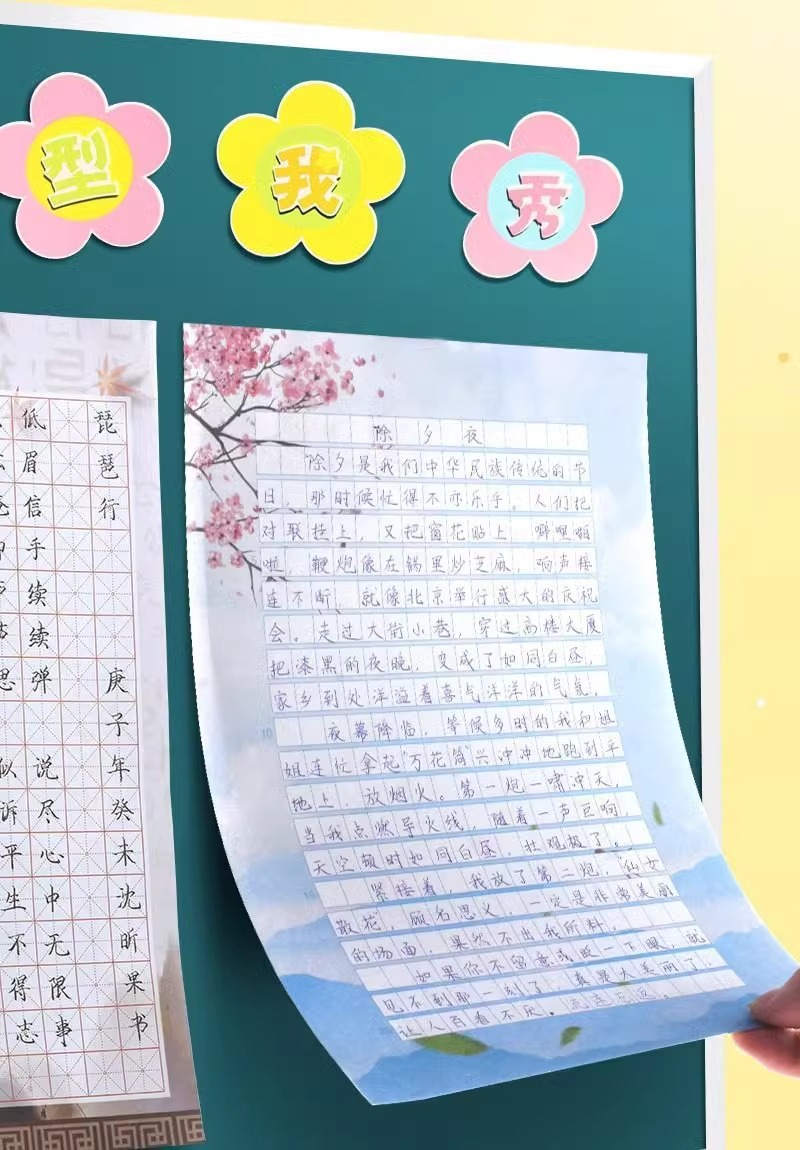 型 我 秀
琵琶行
庚子年癸未沈昕果书
低眉信手续续弹
说尽心中无限事
除夕夜
除夕是我们中华民族传统的节
日，那时候忙得不亦乐乎。人们把
对联挂上，又把窗花贴上，噼哩啪
啦，鞭炮像在锅里炒芝麻，响声接
连不断，就像北京举行盛大的庆祝
会。走过大街小巷，穿过高楼大厦
把漆黑的夜晚，变成了如同白昼，
家乡到处洋溢着喜气洋洋的气氛。
10
夜幕降临，等候多时的我和姐
姐连忙拿起"万花筒"兴冲冲地跑到平
地上，放烟火。第一炮一啸冲天，
当我点燃导火线，随着一声巨响，
天空顿时如同白昼，壮观极了。
紧接着，我放了第二炮，"仙女
散花"，顾名思义，一定是非常美丽
的场面，果然不出我所料。
如果你不留意或眨一下眼，就
见不到那一刻了，真是太美丽了，
让人百看不厌。